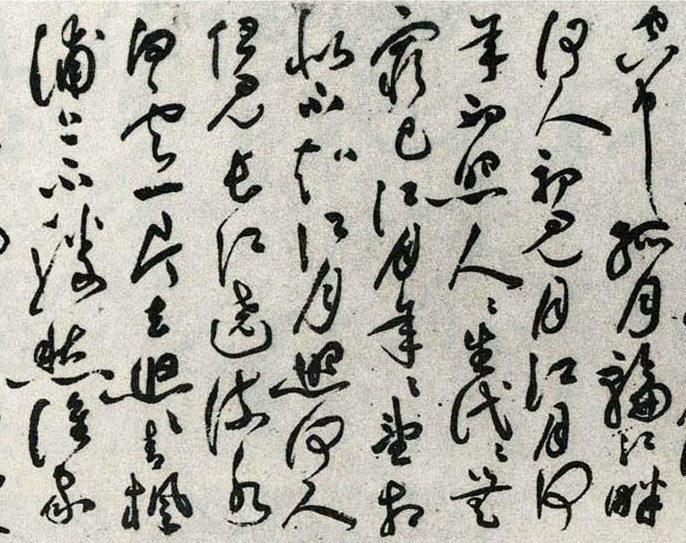 空中孤月輪江畔
何人初見月江月何
年初照人〻生代〻無
窮已江月年〻望相
似不知江月照何人
但見長江送流水
白雲一片去悠〻青楓
浦上不勝愁誰家